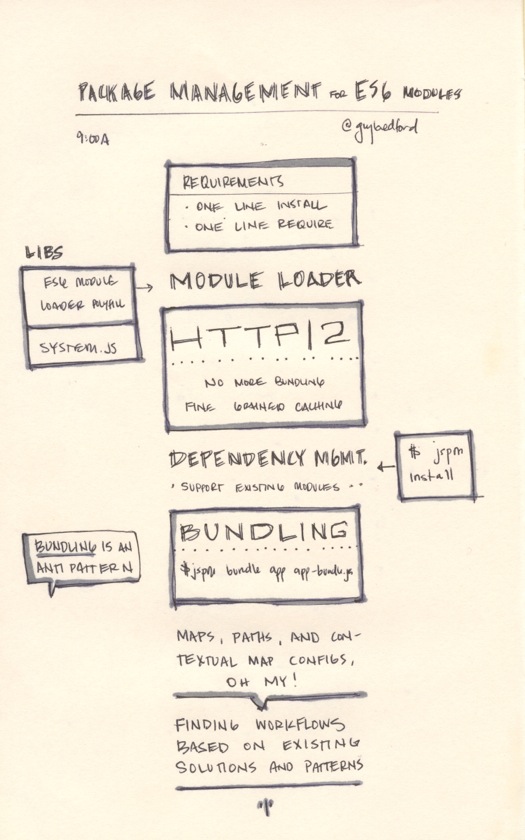 PACKAGE MANAGEMENT FOR ES6 MODULES
9:00A
@guybedford
REQUIREMENTS
· ONE LINE INSTALL
· ONE LINE REQUIRE
LIBS
ES6 MODULE
LOADER POLYFILL
SYSTEM.JS
MODULE LOADER
HTTP/2
NO MORE BUNDLING
FINE GRAINED CACHING
DEPENDENCY MGMT.
· SUPPORT EXISTING MODULES ··
$ jspm
install
BUNDLING
$ jspm bundle app app-bundle.js
BUNDLING IS AN
ANTI PATTERN
MAPS, PATHS, AND CON-
TEXTUAL MAP CONFIGS,
OH MY!
FINDING WORKFLOWS
BASED ON EXISTING
SOLUTIONS AND PATTERNS